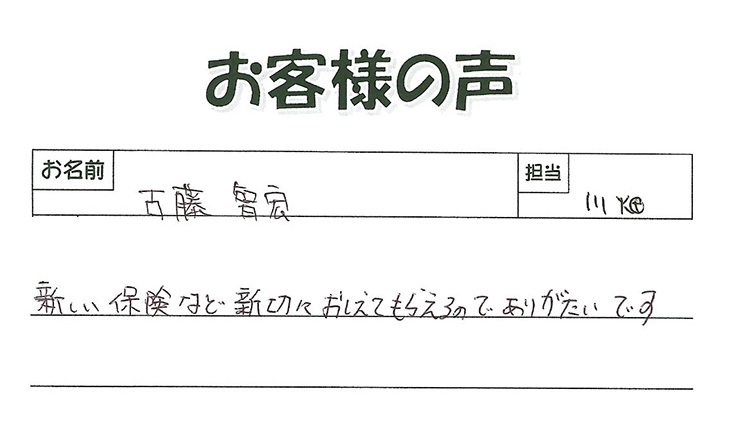 お客様の声
お名前 古藤 智宏 担当 川
新しい保険など新切におしえてもらえるのでありがたいです